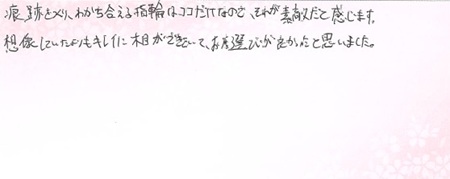 痕跡をメリ、わかち合える指輪はココだけなので、それが素敵だと感じます。
想像していたよりもキレイに木目ができていて、お店選びが良かったと思いました。